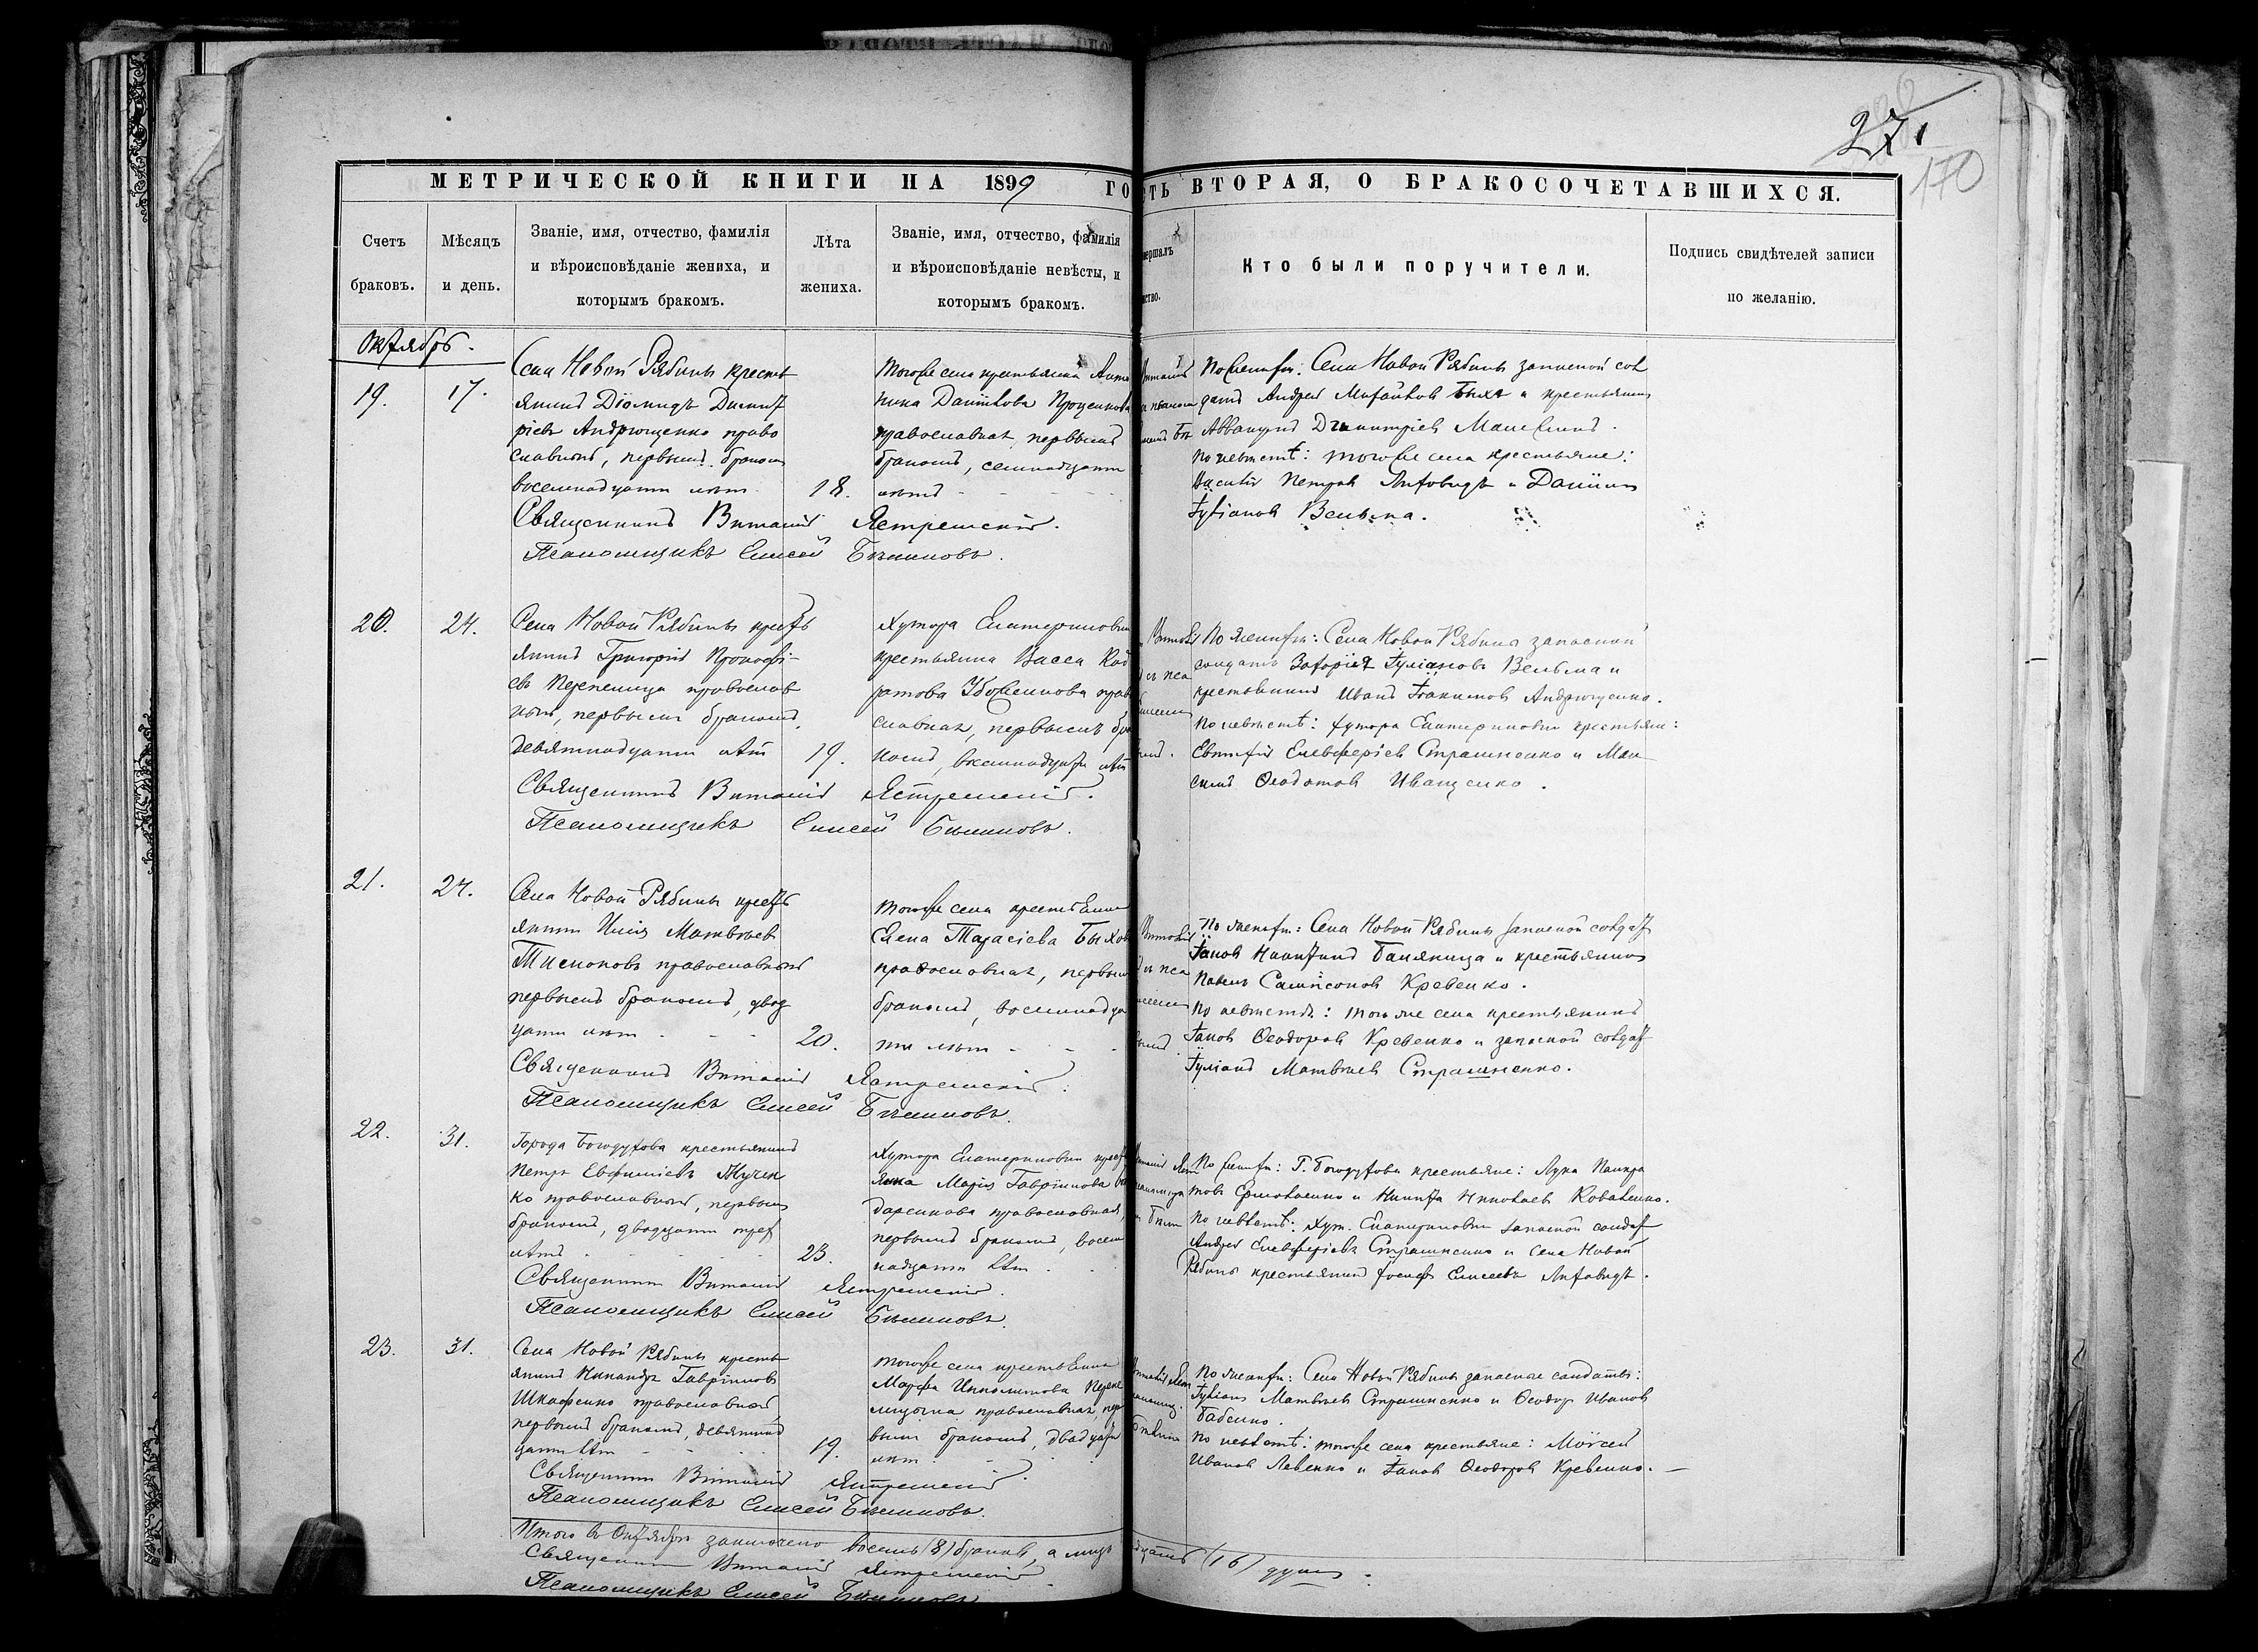 271
170
МЕТРИЧЕСКОЙ КНИГИ НА 1899 ГО
СТЬ ВТОРАЯ, О БРАКОСОЧЕТАВШИХСЯ.
Счетъ браковъ.
Мѣсяцъ и день.
Званіе, имя, отчество, фамилія
и вѣроисповѣданіе жениха, и
которымъ бракомъ.
Лѣта
жениха.
Званіе, имя, отчество, фамилія
и вѣроисповѣданіе невѣсты, и
которымъ бракомъ.
Кто были поручители.
Подпись свидѣтелей записи
по желанію.
Октябрь.
19.
17.
Села Новой Рябины кресть
янинъ Діомидъ Димит
ріевъ Андрющенко право
славный, первымъ бракомъ
восемнадцати лѣтъ
18.
Тогоже села крестьянка Анто
нина Даніилова Проценкова
православная, первымъ
бракомъ, семнадцати
лѣтъ
По женихѣ: Села Новой Рябины запасной сол
датъ Андрей Михайловъ Быхъ и крестьянинъ
Димитріевъ
По невѣстѣ: тогоже села крестьяне:
Василій Петровъ Лиховидъ и Даніилъ
Іуліановъ Вельма.
Священникъ Виталій Ястремскій.
Псаломщикъ Елисей
20.
24.
Села Новой Рябины кресть
янинъ Григорій Прокофі-
евъ Перепелица православ
ный, первымъ бракомъ,
девятнадцати лѣтъ
19.
Хутора Екатериновки
крестьянка Васса Код
ратова Убоженкова прав
славная, первымъ бра
комъ, восемнадцати лѣтъ
По женихѣ: Села Новой Рябины запасной
солдатъ Захарія Іуліановъ Вельма и
крестьянинъ Иванъ Іоакимовъ Андрющенко.
По невѣстѣ: хутора Екатериновки крестьяне:
Евтихій Елевферіевъ Страшненко и Мак
симъ Ѳеодотовъ Иващенко.
Священникъ Виталій Ястремскій.
Псаломщикъ Елисей
21.
24.
Села Новой Рябины кресть
янинъ Илія Матвѣевъ
православный
первымъ бракомъ, двад
цати лѣтъ
20.
Тогоже села крестьянка
Елена Тарасіева Быхов
православная, первым
бракомъ, восемнадца
ти лѣтъ
По женихѣ: Села Новой Рябины запасной солдатъ
Іаковъ и крестьянинъ
Павелъ Сампсоновъ Кревенко.
По невѣстѣ: того же села крестьянинъ
Іаковъ Ѳеодоровъ Кревенко и запасной солдатъ
Іуліанъ Матвѣевъ Страшненко.
Священникъ Виталій Ястремскій.
Псаломщикъ Елисей
22.
31.
Города Богодухова крестьянинъ
Петръ Евфиміевъ Жучен
ко православный, первымъ
бракомъ, двадцати трехъ
лѣтъ
23.
Хутора Екатериновки кресть
янка Марія Гавріилова Бон
даренкова православная,
первымъ бракомъ, восем
надцати лѣтъ
По женихѣ: Г. Богодухова крестьяне: Лука Панкра
товъ Ермоленко и Никита Николаевъ Коваленко.
По невѣстѣ: Хут. Екатериновки запасной солдатъ
Андрей Елевферіевъ Страшненко и села Новой
Рябины крестьянинъ Іосифъ Елисеевъ Лиховидъ.
Священникъ Виталій Ястремскій.
Псаломщикъ Елисей
23.
31.
Села Новой Рябины кресть
янинъ Никандръ Гавріиловъ
православный,
первымъ бракомъ, девятнад
цати лѣтъ
19.
Тогоже села крестьянка
Марфа Ипполитова Перепе
лицына православная, пер
вымъ бракомъ, двадцати
лѣтъ
По женихѣ: Села Новой Рябины запасные солдаты:
Іуліанъ Матвѣевъ Страшненко и Ѳеодоръ Ивановъ
Бабенко.
По невѣстѣ: тогоже села крестьяне: Моѵсей
Ивановъ Левенко и Іаковъ Ѳеодоровъ Кревенко.
Священникъ Виталій Ястремскій
Псаломщикъ Елисей
Итого въ Октябрѣ заключено восемь (8) браковъ, а лицъ
(16) душъ
Священникъ Виталій Ястремскій
Псаломщикъ Елисей